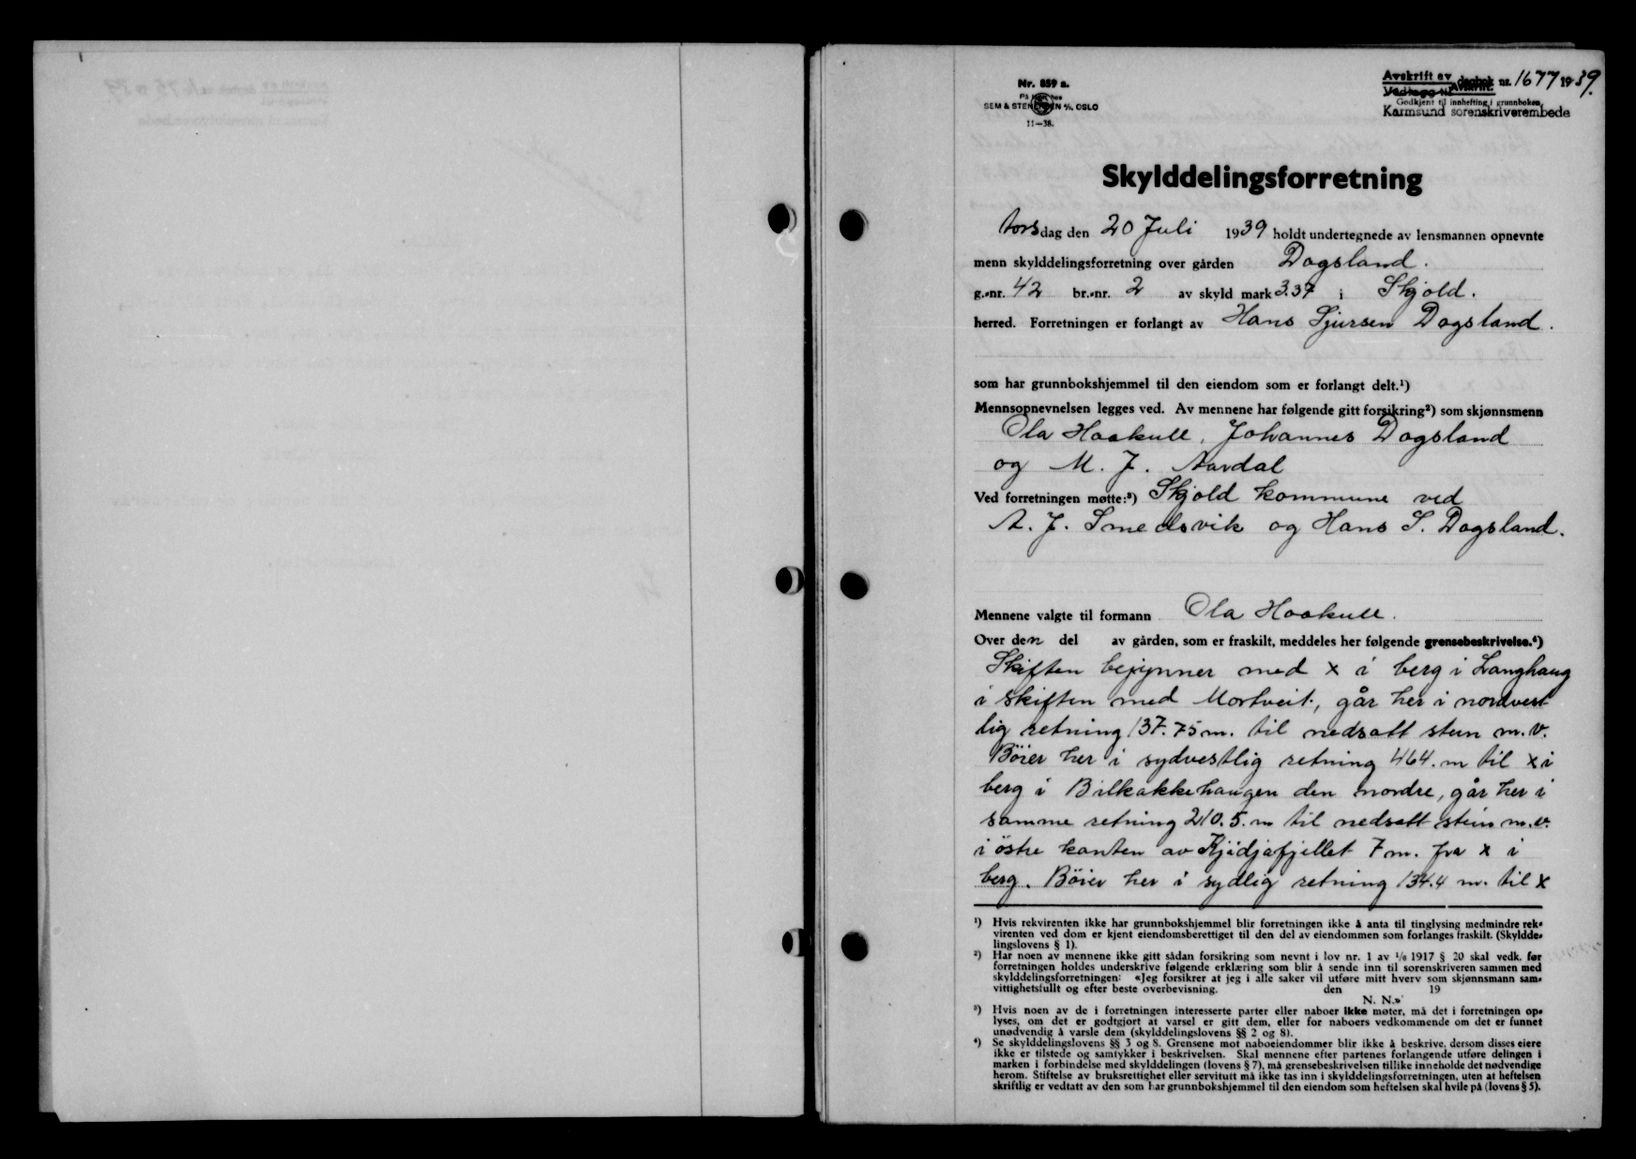 Nr. 859 a.
På lager hos
SEM & STENERSEN A/S. OSLO
11—38.
Avskrift av dagbok nr. 1677 1939.
Vedlegg til Avskrift.
Godkjent til innhefting i grunnboken,
Karmsund sorenskriverembede
Skylddelingsforretning
torsdag den 20 Juli 1939 holdt undertegnede av lensmannen opnevnte
menn skylddelingsforretning over gården Dagsland.
g.-nr. 42 br.-nr. 2 av skyld mark 3.37 i Skjold.
herred. Forretningen er forlangt av Hans Sjursen Dagsland.
som har grunnbokshjemmel til den eiendom som er forlangt delt.¹)
Mennsopnevnelsen legges ved. Av mennene har følgende gitt forsikring²) som skjønnsmenn
Ola Haakull, Johannes Dagsland
og M. J. Aardal
Ved forretningen møtte:³) Skjold kommune ved
A. J. Smedsvik og Hans S. Dagsland.
Mennene valgte til formann Ola Haakull.
Over den del av gården, som er fraskilt, meddeles her følgende grensebeskrivelse.⁴)
Skiften begynner med x i berg i Langhaug
i skiften med Mortveit, går her i nordvest
lig retning 137.75 m. til nedsatt stein m.v.
Böier her i sydvestlig retning 464. m til x i
berg i Bilkakkehaugen den nordre, går her i
samme retning 210.5. m til nedsatt stein m.v.
i östre kanten av Kjidjafjellet 7 m. fra x i
berg. Böier her i sydlig retning 134.4 m. til x
¹) Hvis rekvirenten ikke har grunnbokshjemmel blir forretningen ikke å anta til tinglysing medmindre rek-
virenten ved dom er kjent eiendomsberettiget til den del av eiendommen som forlanges fraskilt. (Skyldde-
lingslovens § 1).
²) Har noen av mennene ikke gitt sådan forsikring som nevnt i lov nr. 1 av 1/6 1917 § 20 skal vedk. før
forretningen holdes underskrive følgende erklæring som blir å sende inn til sorenskriveren sammen med
skylddelingsforretningen: «Jeg forsikrer at jeg i alle saker vil utføre mitt hverv som skjønnsmann sam-
vittighetsfullt og efter beste overbevisning. den 19
N. N.»
³) Hvis noen av de i forretningen interesserte parter eller naboer ikke møter, må det i forretningen op-
lyses, om det er godtgjort at varsel er gitt dem, eller for naboers vedkommende om det er funnet
unødvendig å varsle dem (skylddelingslovens §§ 2 og 8).
⁴) Se skylddelingslovens §§ 3 og 8. Grensene mot naboeiendommer blir ikke å beskrive, dersom disses eiere
ikke er tilstede og samtykker i beskrivelsen. Skal mennene efter partenes forlangende utføre delingen i
marken i forbindelse med skylddelingen (lovens § 7), må grensebeskrivelsen tillike inneholde det nødvendige
herom. Stiftelse av bruksrettighet eller servitutt må ikke tas inn i skylddelingsforretningen, uten at heftelsen
skriftlig er vedtatt av den som har grunnbokshjemmel til den eiendom som heftelsen skal hvile på (lovens § 5).